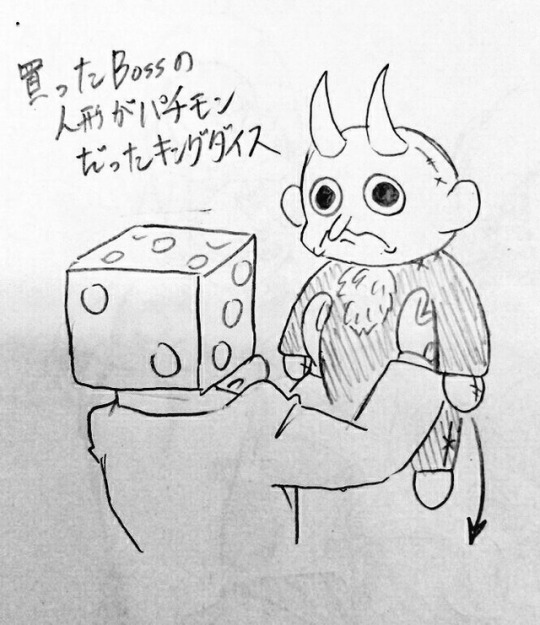 買ったBossの
人形がパチモン
だったキングダイス